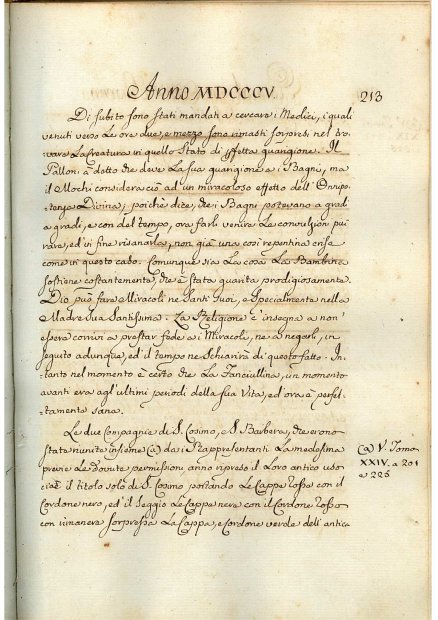 Anno MDCCCV.
213
Di subito sono stati mandati a cercare i Medici, i quali
venuti verso le ore due, e mezzo sono rimasti sorpresi nel tro-
vare la Creatura in quello Stato di pffetta guarigione. Il
Palloni à detto che deve la sua guarigione a i Bagni, ma
il Mochi considera ciò ad un miracoloso effetto dell'Onnipo-
tenza Divina; poichè dice, che i Bagni potevano a gradi
a gradi, e con del tempo, ora farli venire le Convulzioni più
rare, ed in fine risanarla, non già una così repentina crise
come in questo caso. Comunque sia la cosa la Bambina
sostiene costantemente, che è stata guarita prodigiosamente.
Dio può fare Miracoli ne Santi Suoi, e Specialmente nella
Madre sua Santissima. La Religione c'insegna a non
esser corrivi a prestar fede a i Miracoli, ne a negarli, in
seguito adunque, ed il tempo ne Schiarirà di questo fatto. In-
tanto nel momento è certo che La Fanciullina, un momento
avanti era agl'ultimi periodi della sua Vita, ed ora è perfet-
tamente sana.
Le due Compagnie di S. Cosimo, e S. Barbera, che erono
state riunite insieme (a) da i Rappresentanti la medesima
previe le dovute permissioni anno ripreso il Loro antico uso
cioè il titolo solo di S. Cosimo portando le Cappe rosse con il
Cordone nero, ed il Seggio le Cappe nere con il Cordone rosso
con rimanere soppressa la Cappa, e Cordone verde dell'antica
(a) V. Tomo
XXIV. a 201
e 225